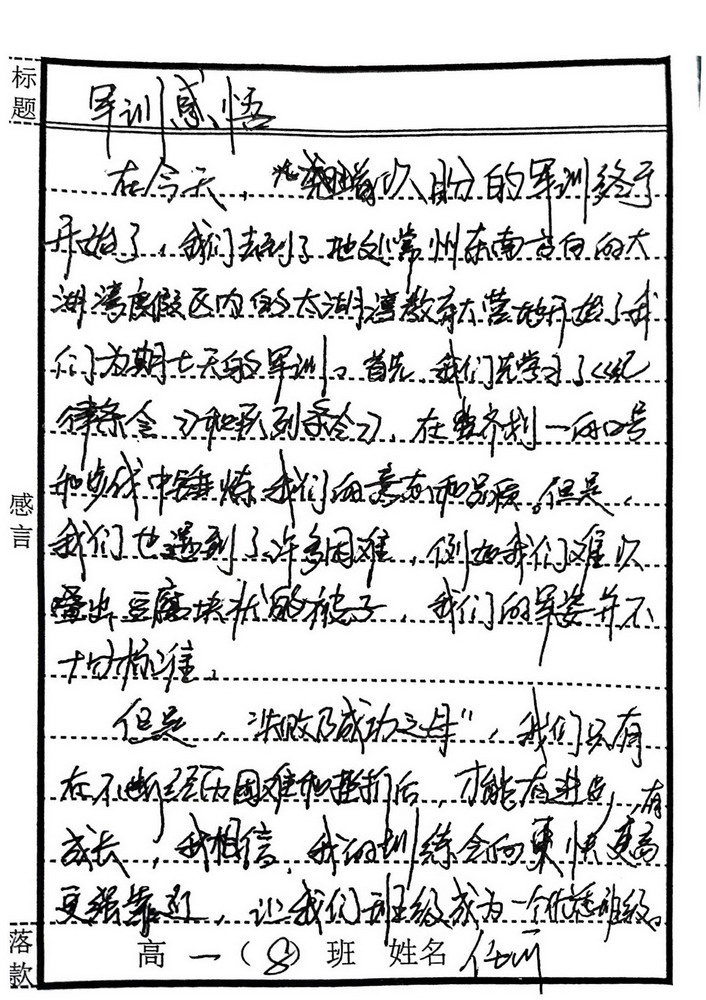 标题
军训感悟
在今天,翘首以盼的军训终于
开始了,我们去到了地处常州东南方向的太
湖湾度假区内的太湖湾教育大营地开始了我
们为期七天的军训。首先,我们先学习了《纪
律条令》和《队列条令》,在整齐划一的口号
和步伐中锤炼我们的意志和品质。但是,
我们也遇到了许多困难,例如我们难以
叠出豆腐块状的被子,我们的军姿并不
十分标准。
但是,"失败乃成功之母",我们只有
在不断经历困难和挫折后,才能有进步,有
成长,我相信,我们的训练会向更快更高
更强靠近,让我们班级成为一个优秀班级。
感言
落款
高一(8)班 姓名